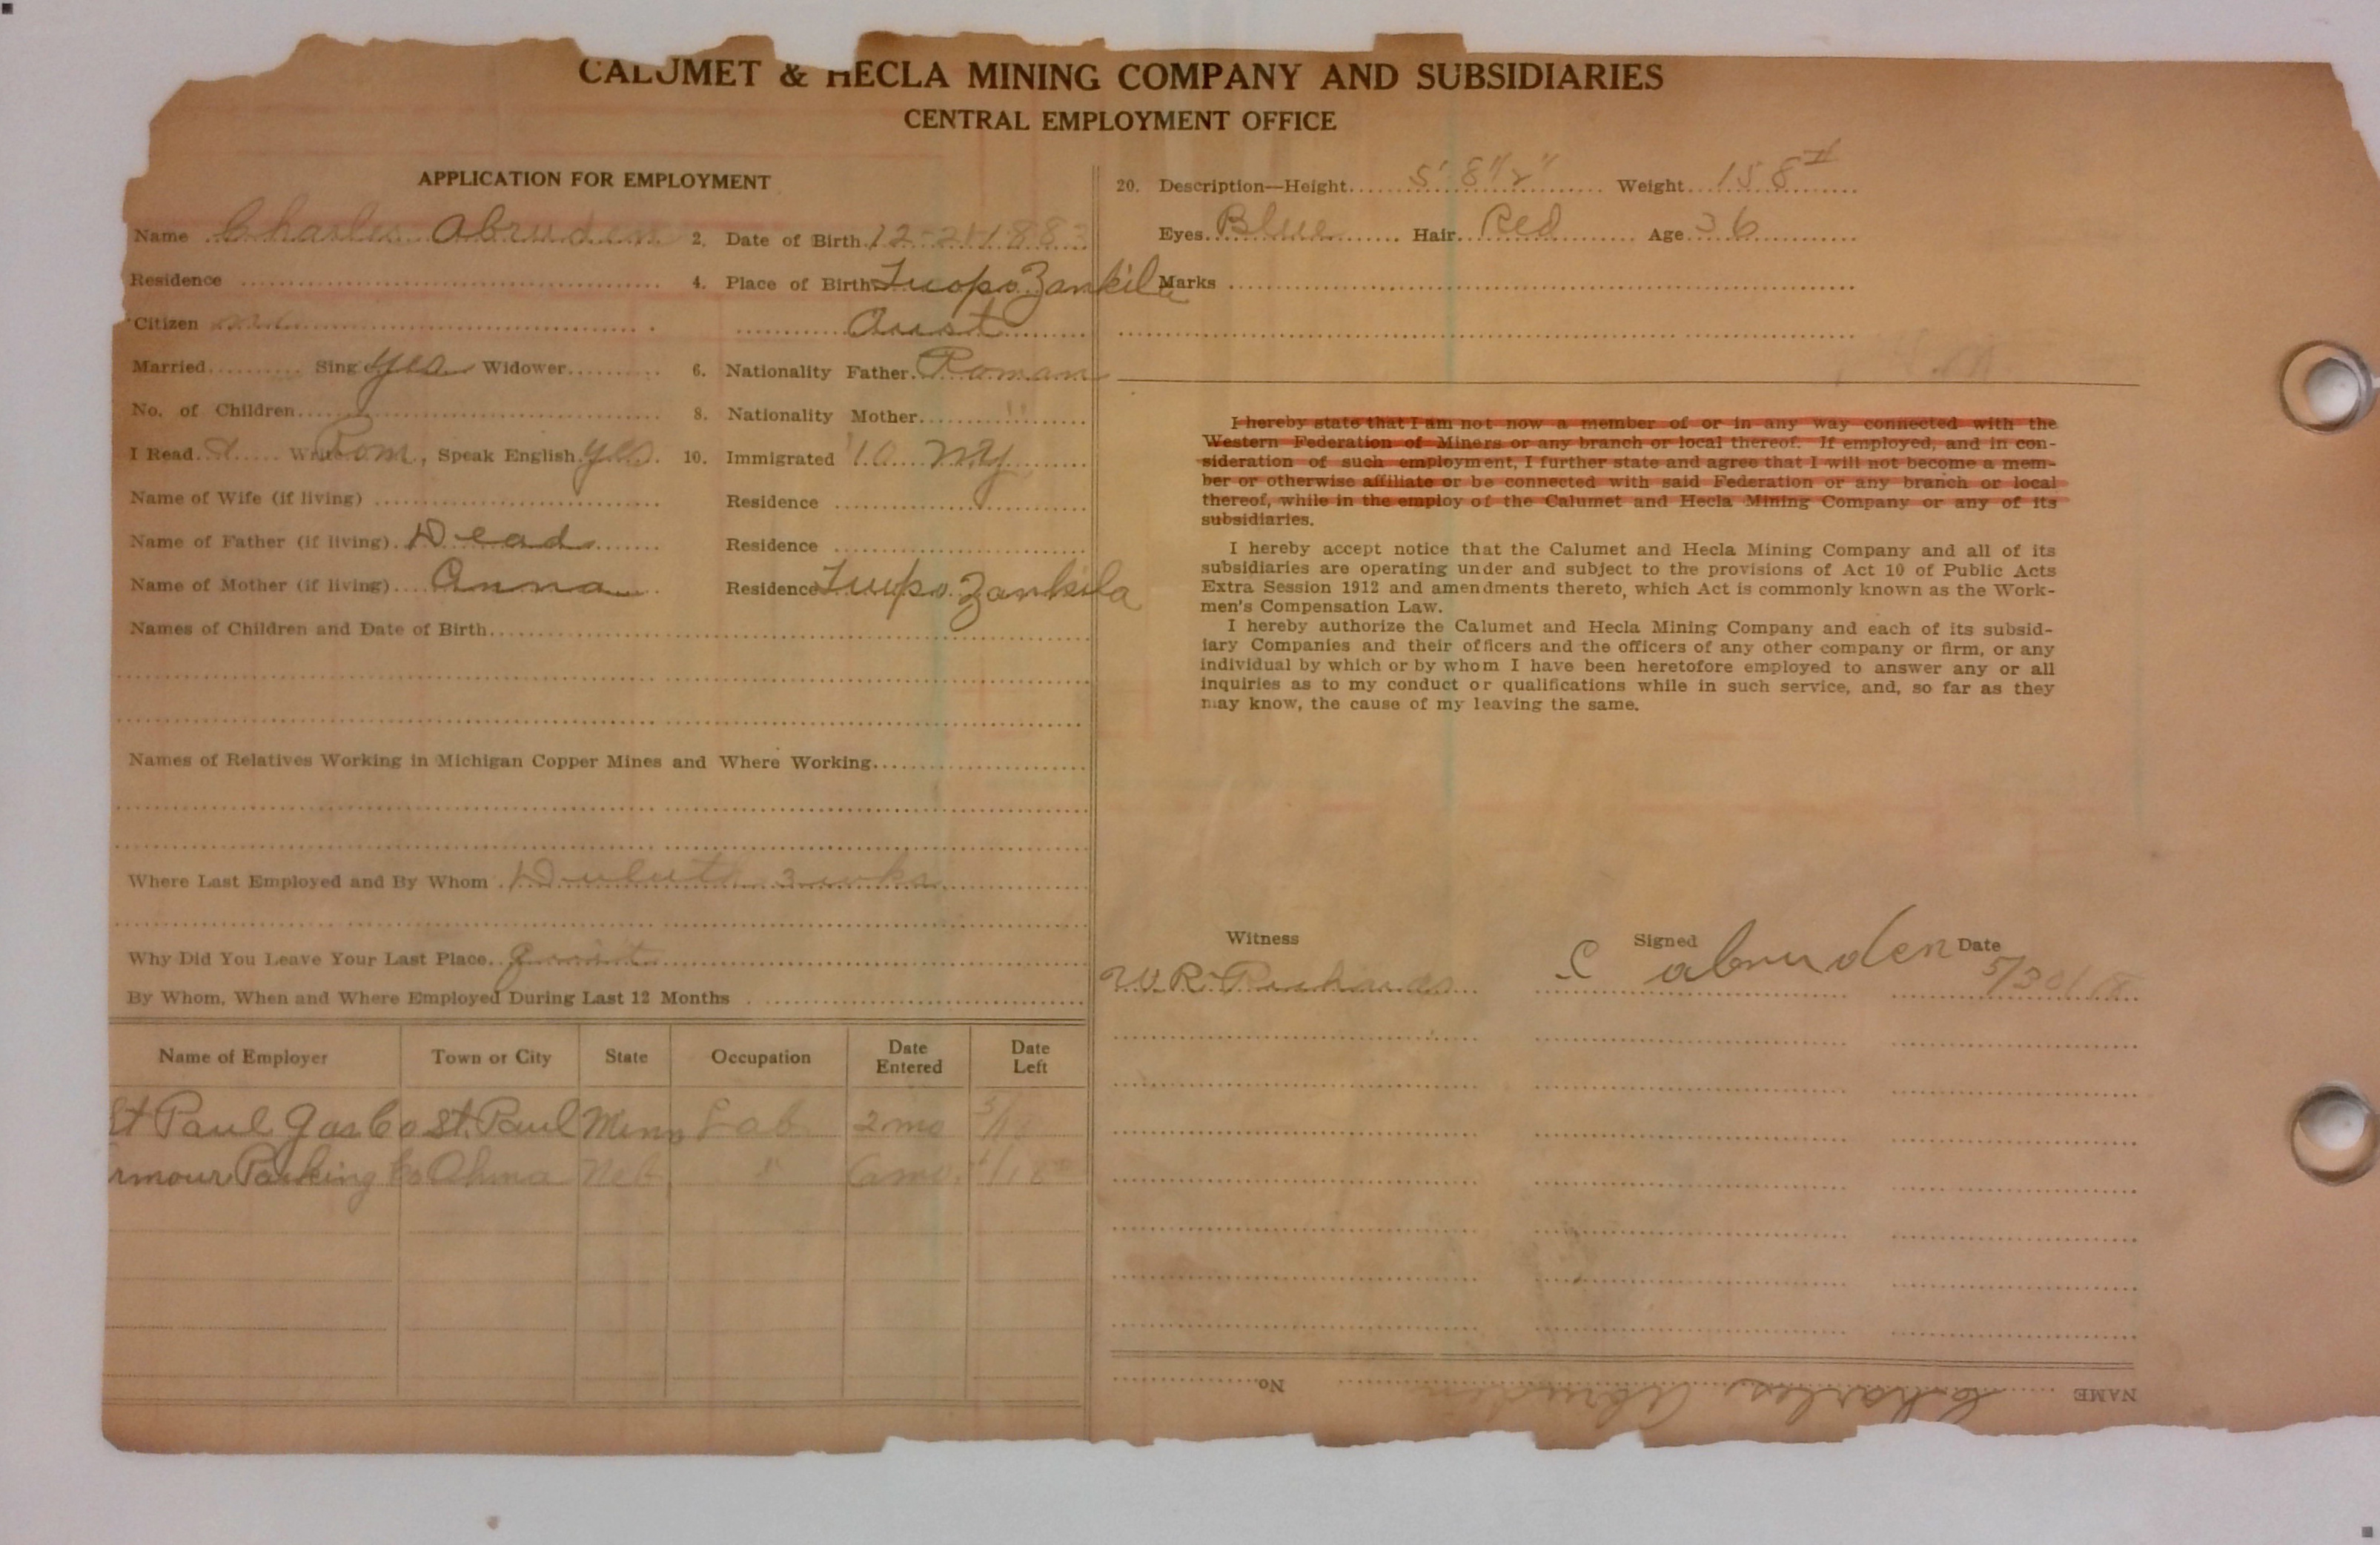 CALUMET & HECLA MINING COMPANY AND SUBSIDIARIES
CENTRAL EMPLOYMENT OFFICE
APPLICATION FOR EMPLOYMENT
Name Charles Abruden 2. Date of Birth 12-21-1883
Residence 4. Place of Birth Zankila
Citizen no Aust
Married Single yes Widower 6. Nationality Father Roman
No. of Children 8. Nationality Mother "
I Read & Write Rom, Speak English yes. 10. Immigrated '10 NY
Name of Wife (if living) Residence
Name of Father (if living) Dead Residence
Name of Mother (if living) Anna Residence Zankila
Names of Children and Date of Birth
Names of Relatives Working in Michigan Copper Mines and Where Working
Where Last Employed and By Whom Duluth 3 wks
Why Did You Leave Your Last Place
By Whom, When and Where Employed During Last 12 Months
Name of Employer Town or City State Occupation Date Entered Date Left
St Paul Gas Co St. Paul Minn Lab 2 mo
rmour Packing Co Ohma Neb " 6 mo.
20. Description—Height 5' 8 1/2" Weight 158#
Eyes Blue Hair Red Age 36
Marks
I hereby state that I am not now a member of or in any way connected with the
Western Federation of Miners or any branch or local thereof. If employed, and in con-
sideration of such employment, I further state and agree that I will not become a mem-
ber or otherwise affiliate or be connected with said Federation or any branch or local
thereof, while in the employ of the Calumet and Hecla Mining Company or any of its
subsidiaries.
I hereby accept notice that the Calumet and Hecla Mining Company and all of its
subsidiaries are operating under and subject to the provisions of Act 10 of Public Acts
Extra Session 1912 and amendments thereto, which Act is commonly known as the Work-
men's Compensation Law.
I hereby authorize the Calumet and Hecla Mining Company and each of its subsid-
iary Companies and their officers and the officers of any other company or firm, or any
individual by which or by whom I have been heretofore employed to answer any or all
inquiries as to my conduct or qualifications while in such service, and, so far as they
may know, the cause of my leaving the same.
Witness Signed Date
W. R. Richards C abruden 5/30/18
NAME Charles Abruden No.